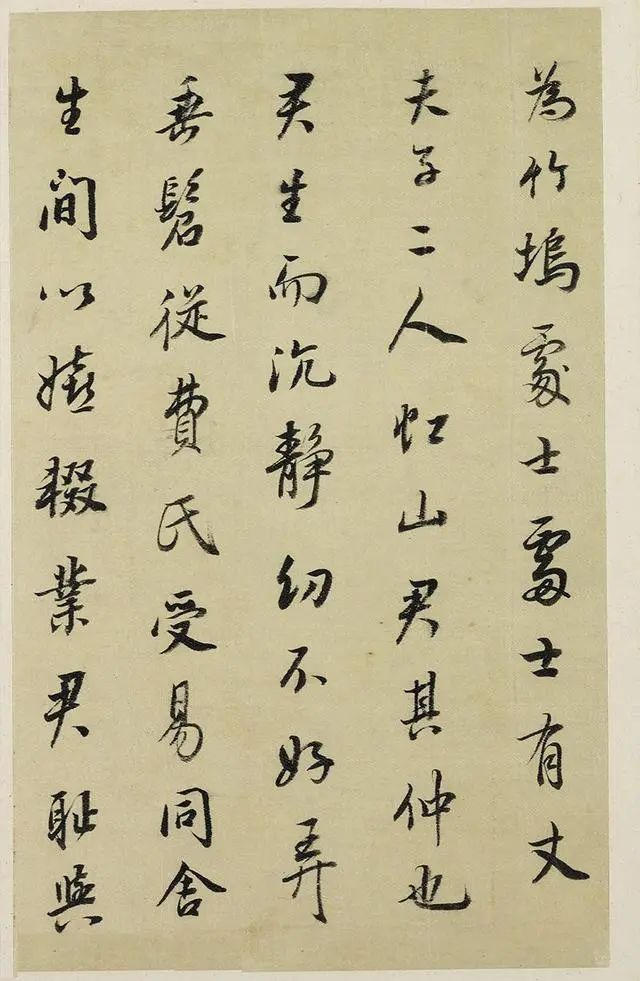 為竹塢處士處士有丈
夫子二人虹山君其仲也
君生而沉靜幼不好弄
垂髫從費氏受易同舍
生間以嬉輟業君恥與